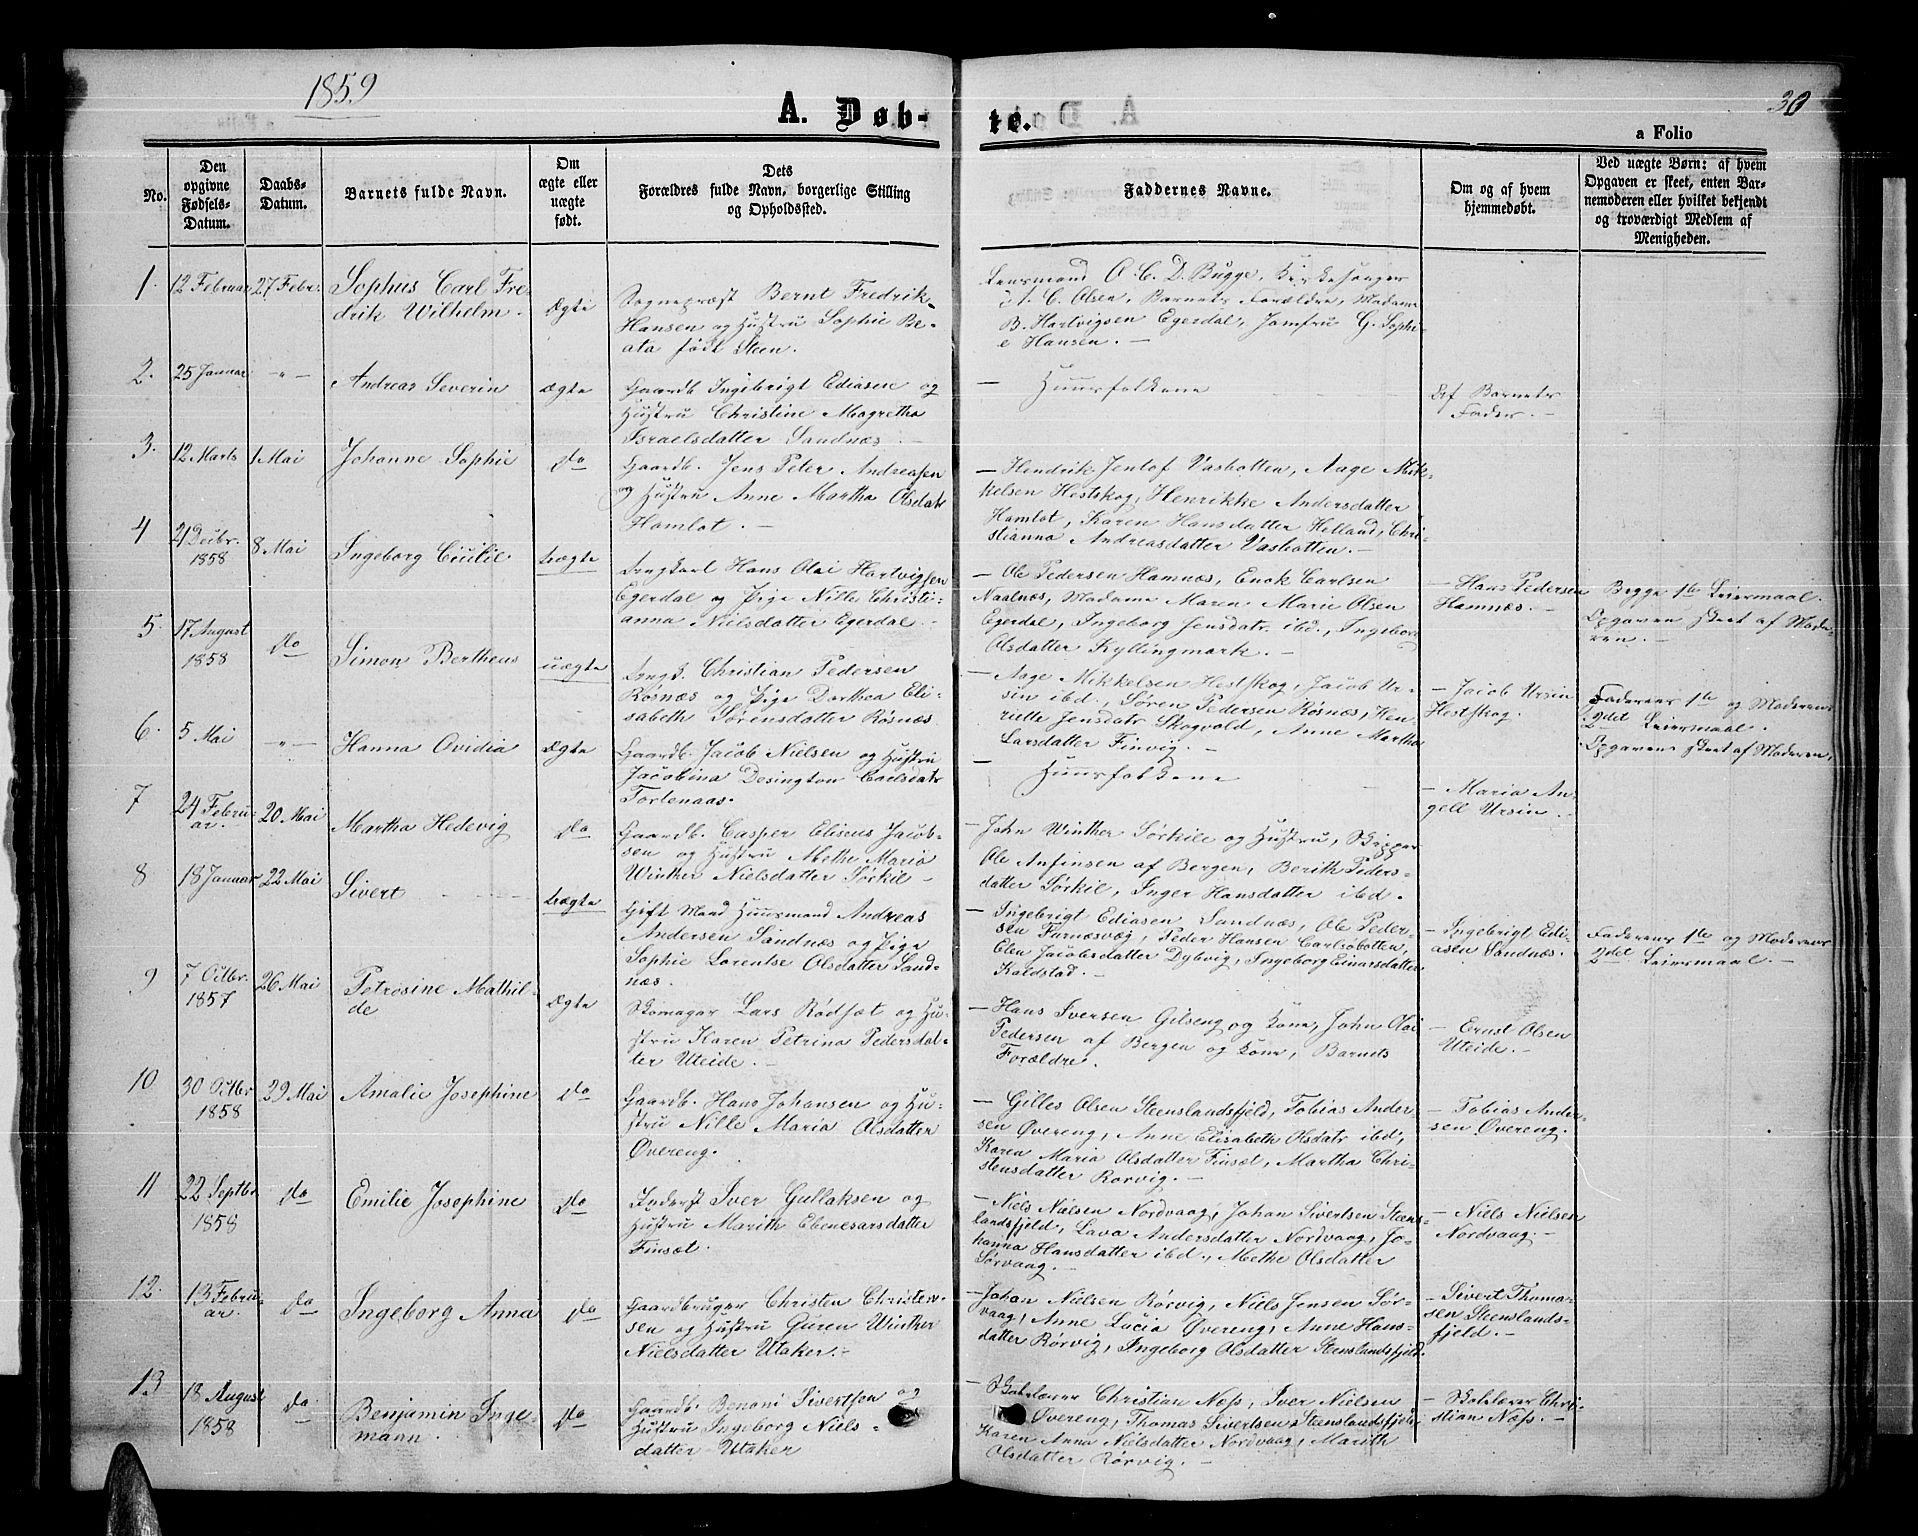 1859
A. Døb-
te.
30
a Folio
No.
Den
opgivne
Fødsels-
Datum.
Daabs-
Datum.
Barnets fulde Navn.
Om
ægte eller
uægte
født.
Dets
Forældres fulde Navn, borgerlige Stilling
og Opholdssted.
Faddernes Navne.
Om og af hvem
hjemmedøbt.
Ved uægte Børn: af hvem
Opgaven er skeet, enten Bar-
nemoderen eller hvilket bekjendt
og troværdigt Medlem af
Menigheden.
1. 12 Februar 27 Febr.
Sophus Carl Fre-
drik Wilhelm.
Ægte
Sognepræst Bernt Fredrik
Hansen og Hustru Sophie Be-
ata født Steen.
Lensmand O. C. D. Bugge, Kirkesanger
C. Olsen, Barnets Forældre, Madame
B. Hartvigsen Egerdal, Jomfru G. Sophi-
e Hansen. -
2. 25 Januar - " -
Andreas Severin
ægte
Gaardb Ingebrigt Ediasen og
Hustru Christine Magretha
Israelsdatter Sandnæs. -
- Huusfolkene
Af Barnets
Fader. -
3. 12 Marts 1 Mai
Johanne Sophie
do
Gaardb. Jens Peter Andreasen
og Hustru Anne Martha Olsdatr
Hamlot. -
- Hendrik Jentof Vasbotten, Aage Mik-
kelsen Hestskog, Henrikke Andersdatter
Hamlot, Karen Hansdatter Helland, Chri-
stianna Andreasdatter Vasbotten. -
4 21 Decbr. 8 Mai
1858
Ingeborg Cicilie
Uægte
Ungkarl Hans Olai Hartvigsen
Egerdal og Pige Nille Christi-
anna Nielsdatter Egerdal. -
- Ole Pedersen Hamnæs, Enok Carlsen
Naalnæs, Madame Maren Marie Olsen
Egerdal, Ingeborg Jensdatr. ibd., Ingeborg
Olsdatter Kyllingmark. -
- Hans Pedersen
Hamnæs. -
Begge 1ste Leiermaal.
Opgaven skeet af Mode-
ren. -
5. 17 August do
1858
Simon Bertheus
uægte
Ungk. Christian Pedersen
Rosnæs og Pige Dorthea Eli-
sabeth Sørensdatter Røsnæs
- Aage Mikkelsen Hestskog, Jacob Ur-
sin ibd., Søren Pedersen Rørnæs, Hen-
riette Jensdatr Skogvold, Anne Martha
Larsdatter Finvig. -
- Jacob Ursin
Hestskog.
Faderens 1te og Moderens
2det Leiermaal.
Opgaven skeet af Moderen.
6. 5 Mai - " -
Hanna Ovidia
Ægte
Gaardb. Jacob Nielsen og Hustru
Jacobina Desington Carlsdatr
Tortenaas.
- Huusfolkene
- Maria An-
gell Ursin. -
7 24 Febru- 20 Mai
ar.
Martha Hedevig
do
Gaardb. Casper Eliseus Jacob-
sen og Hustru Methe Maria
Winther Nielsdatter Sørkil -
- John Winther Sørkile og Hustru, Skipper
Ole Anfinsen af Bergen, Berith Peders-
datter Sørkil, Inger Hansdatter ibd.
8 18 Januar 22 Mai
Sivert
Uægte
Gift Mand Huusmand Andreas
Andersen Sandnæs og Pige
Sophie Lorentse Olsdatter Sand-
næs.
- Ingebrigt Ediasen Sandnæs, Ole Peder-
sen Furnæsvæg, Peder Hansen Carlsbotten,
Elen Jacobsdatter Dybvig, Ingeborg Einarsdatter
Kaldstad. -
- Ingebrigt Edi-
asen Sandnæs. -
Faderens 1te og Moderens
2det Leiermaal. -
9 7 Octbr. 26 Mai
1857
Petrosine Mathil-
de
Ægte
Skomager Lars Rødsæt og Hu-
stru Karen Petrina Pedersdat-
ter Uteide. -
- Hans Iversen Gilseng og Kone, John Olai
Pedersen af Bergen og Kone, Barnets
Forældre.
- Ernst Olsen
Uteide. -
10 30 Octbr 29 Mai
1858
Amalie Josephine
do
Gaardb. Hans Johansen og Hu-
stru Nille Maria Olsdatter
Øvereng.
- Gilles Olsen Steenslandsfjeld, Tobias Ander-
sen Øvereng, Anne Elisabeth Olsdatr ibd,
Karen Maria Olsdatter Finsæt, Martha Chri-
stensdatter Rørvig. -
- Tobias Ander-
sen Øvereng. -
11 22 Septbr do
1858
Emilie Josephine
do
Inderst Iver Gullaksen og
Hustru Marith Ebenesarsdatter
Finsæt.
- Niels Nielsen Nordvaag, Johan Sivertsen Steens-
landsfjeld, Lava Andersdatter Nordvaag, Jo-
hanna Hansdatter ibd., Methe Olsdatter
Sørvaag. -
- Niels Nielsen
Nordvaag. -
12. 13 Febru- do
ar.
Ingeborg Anna
do
Gaardbruger Christen Christen-
sen og Hustru Guren Winther
Nielsdatter Utaker. -
- Johan Nielsen Rørvig, Niels Jensen Sør-
vaag, Anne Lucia Øvereng, Anne Hans-
datter Rørvig, Ingeborg Olsdatter Steenslandsfjeld.
- Sivert Thoma-
sen Steenslands-
fjeld. -
13 18 August do
1858
Benjamin Inge-
mann.
do
Gaardb. Benoni Sivertsen og
Hustru Ingeborg Niels-
datter Utaker
- Skolelærer Christian Næss, Iver Nielsen
Øvereng, Thomas Sivertsen Steenslandsfjeld,
Karen Anna Nielsdatter Nordvaag, Marith
Olsdatter Rørvig. -
- Skolelærer Chri-
stian Næss. -